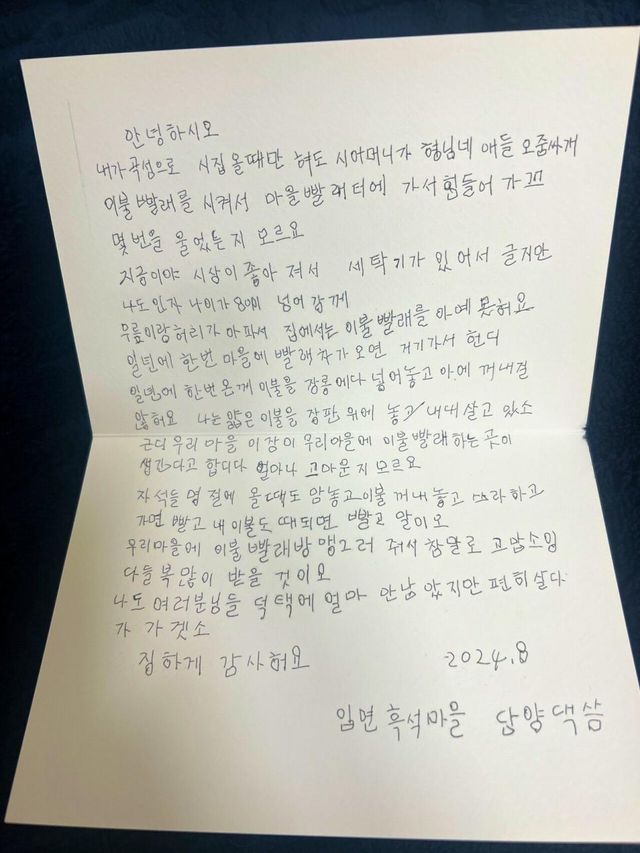 안녕하시오
내가 곡성으로 시집 올때만 혀도 시어머니가 형님네 애들 오줌싸개
이불 빨래를 시켜서 마을 빨래터에 가서 힘들어 가꼬
몇번을 울었는지 모르요
지금이야 시상이 좋아 져서 세탁기가 있어서 글지만
나도 인자 나이가 80이 넘어 감께
무릎이랑 허리가 아파서 집에서는 이불 빨래를 아예 못혀요
일년에 한번 마을에 빨래차가 오면 거기가서 헌디
일년에 한번 온께 이불을 장롱에다 넣어놓고 아예 꺼내질
않허요 나는 얇은 이불을 장판 위에 놓고 내내 살고 있소
근디 우리 마을 이장이 우리마을에 이불 빨래하는 곳이
생긴다고 합디다 얼마나 고마운지 모르요
자석들 명절에 올때도 맘놓고 이불 꺼내 놓고 쓰라하고
가면 빨고 내 이불도 때되면 빨고 할이오
우리마을에 이불 빨래방 맹그러 줘서 참말로 고맙소잉
다들 복많이 받을 것이오
나도 여러분님들 덕택에 얼마 안남았지만 편히 살다
가 가겟소
집하게 감사혀요 2024.8
입면 흑석마을 담양댁 씀